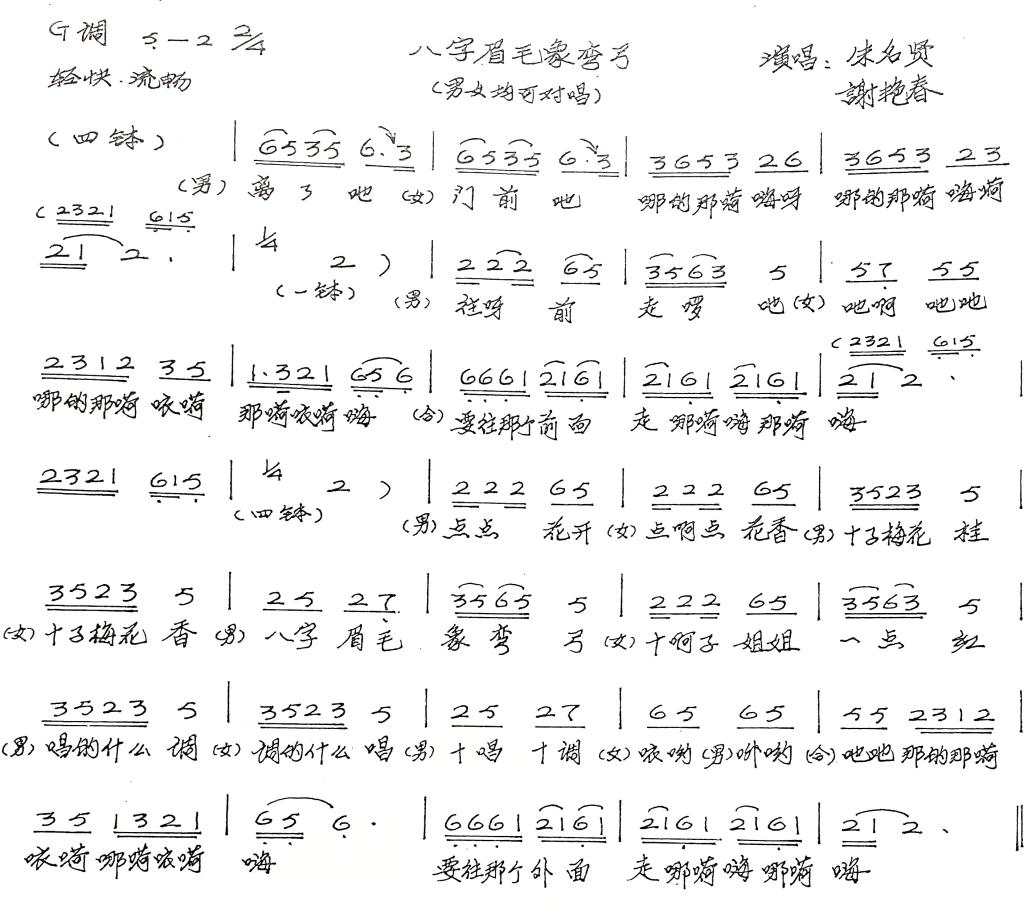 G调 5—2 2/4
八字眉毛象弯弓
演唱：朱名贤
轻快.流畅
(男女均可对唱)
謝艳春
(四钵) | 6535 6.3 | 6535 6.3 | 3653 26 | 3653 23
(男) 离了吔 (女) 门前吔 哪的那嗬嗨呀 哪的那嗬嗨嗬
(2321 615
21 2. | 1/4 2 ) | 222 65 | 3563 5 | 57 55
(一钵) (男) 往呀前 走啰吔 (女) 吔啊吔吔
(2321 615
2312 35 | 1.321 656 | 6661 2161 | 2161 2161 | 21 2. |
哪的那嗬咳嗬 那嗬咳嗬嗨 (合) 要往那个前面 走那嗬嗨那嗬嗨
2321 615 | 1/4 2 ) | 222 65 | 222 65 | 3523 5 |
(四钵) (男) 点点花开 (女) 点啊点花香 (男) 十子梅花桂
3523 5 | 25 27 | 3565 5 | 222 65 | 3563 5 |
(女) 十子梅花香 (男) 八字眉毛象弯弓 (女) 十啊子姐姐一点红
3523 5 | 3523 5 | 25 27 | 65 65 | 55 2312 |
(男) 唱的什么调 (女) 调的什么唱 (男) 十唱十调 (女) 咳哟 (男) 咿哟 (合) 吔吔那的那嗬
35 1321 | 65 6. | 6661 2161 | 2161 2161 | 21 2. ‖
咳嗬哪嗬咳嗬嗨 要往那个外面 走哪嗬嗨哪嗬嗨